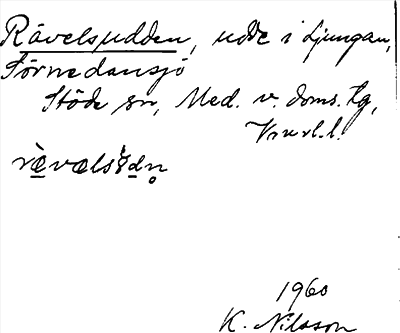 Rävelsudden, udde i Ljungan,
Förnedansjö
Stöde sn, Med. v. doms. tg,
Vnrl.l.
rævəlsɵdn̥
1960
K. Nilsson